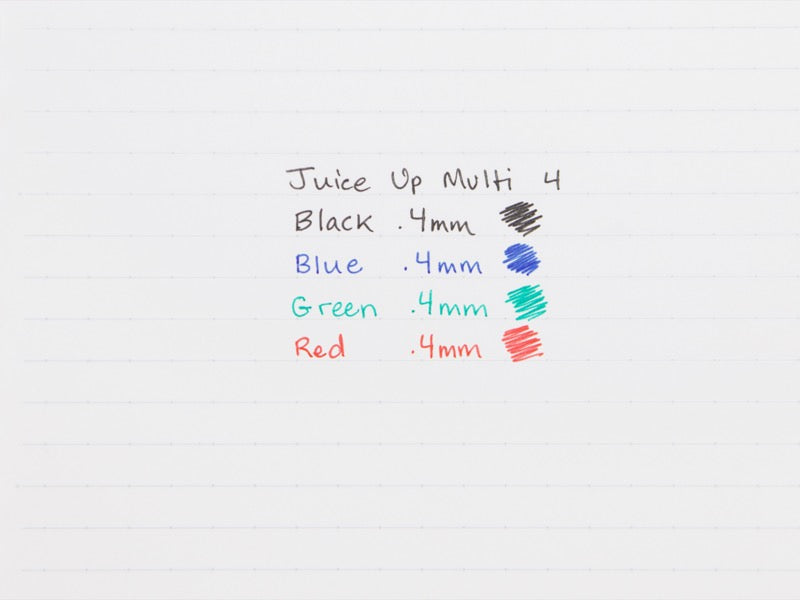 Juice Up Multi 4
Black .4mm
Blue .4mm
Green .4mm
Red .4mm